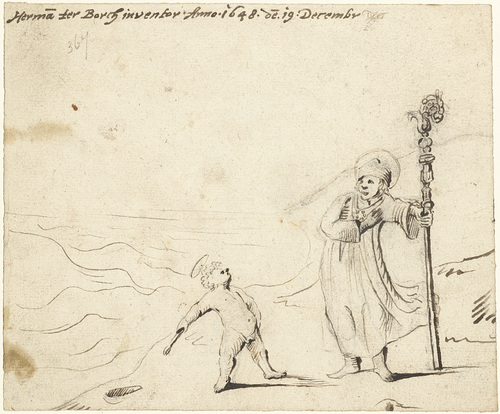 Hermā ter Borch inventor · Anno · 1648 · dē. 19 · Decembr
367